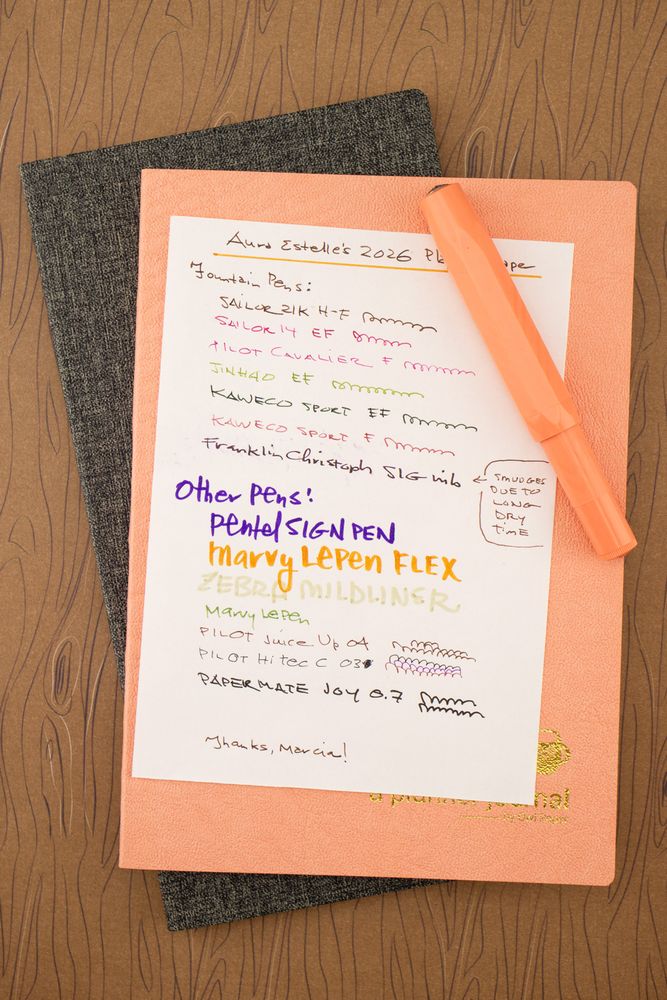 Aura Estelle's 2026
Fountain Pens:
SAILOR 21K H-F
SAILOR 14 EF
PILOT CAVALIER F
JINHAO EF
KAWECO SPORT EF
KAWECO SPORT F
Franklin Christoph SIG nib
SMUDGES
DUE TO
LONG
DRY
TIME
Other Pens:
Pentel SIGN PEN
Marvy LePen FLEX
ZEBRA MILDLINER
Marvy LePen
PILOT Juice Up 04
PILOT Hi tec C 03
PAPERMATE JOY 0.7
Thanks, Marcia!